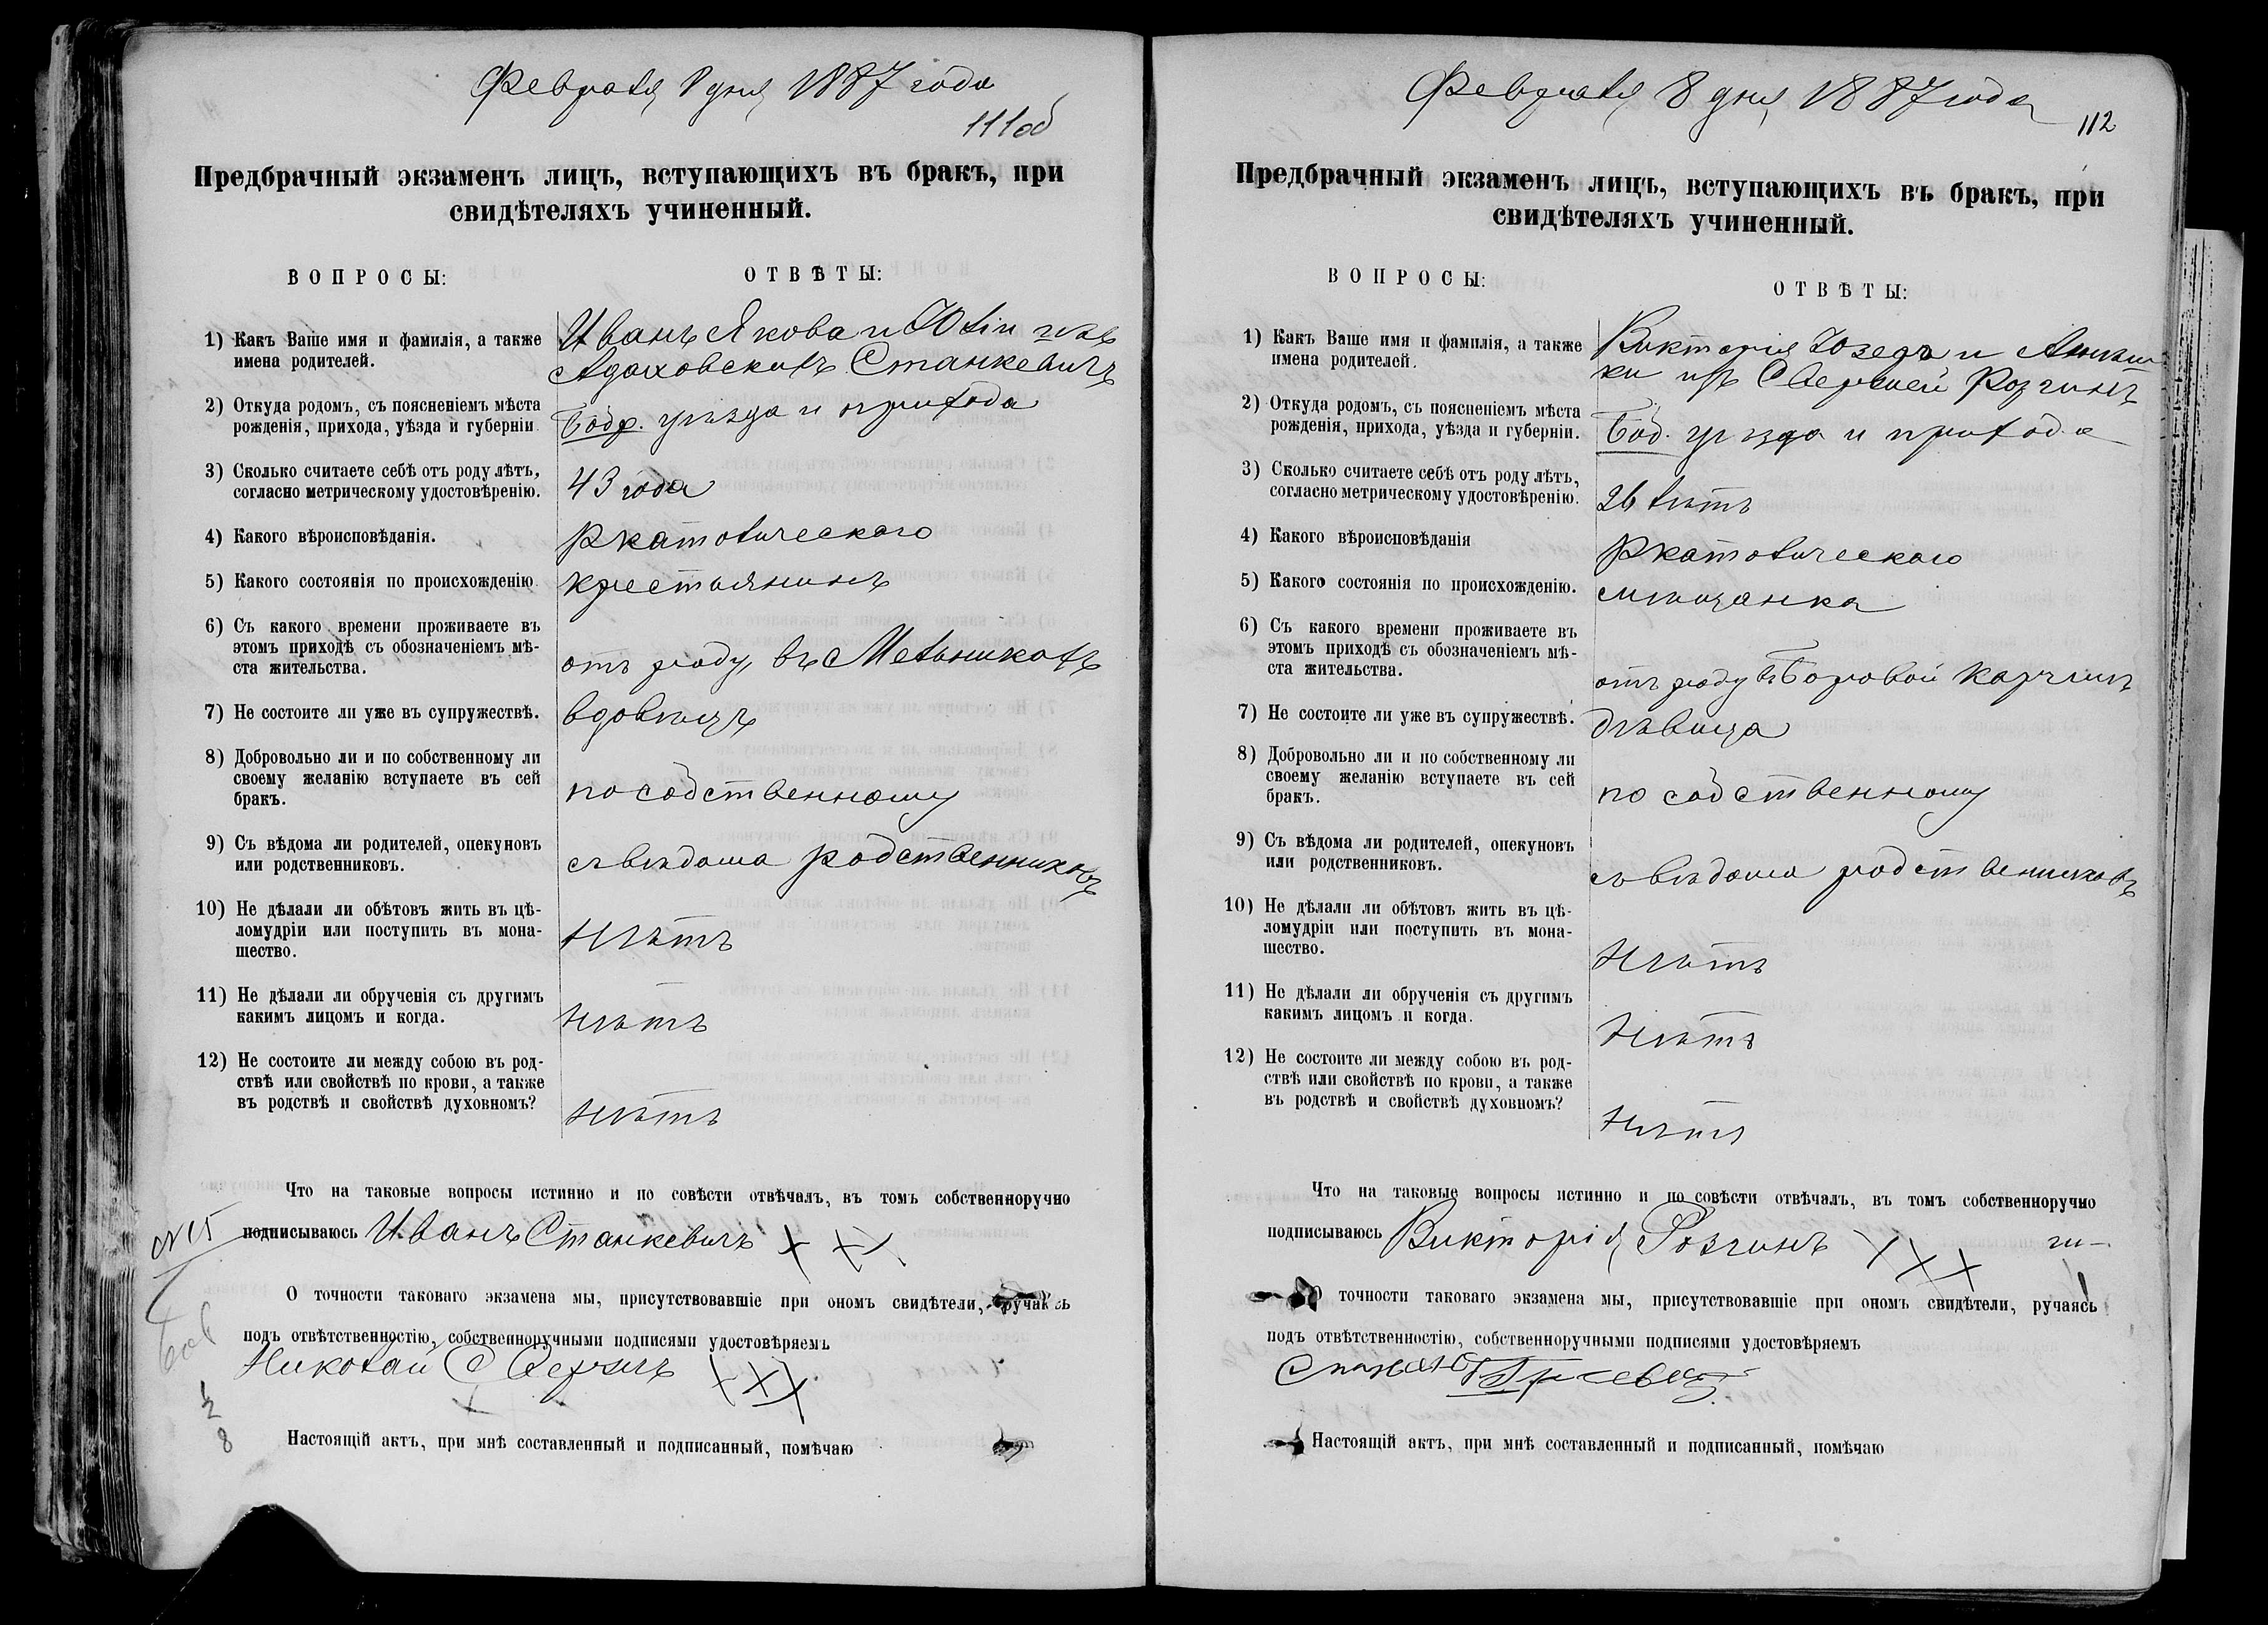 Февраля 8 дня 1887 года
111об
Предбрачный экзаменъ лицъ, вступающихъ въ бракъ, при
свидѣтеляхъ учиненный.
ВОПРОСЫ:
ОТВѢТЫ:
1) Какъ Ваше имя и фамилія, а также
имена родителей.
Иванъ Якова и Юлiи изъ
Адаховскихъ Станкевичъ
2) Откуда родомъ, съ поясненіемъ мѣста
рожденія, прихода, уѣзда и губерніи.
Бобр. уѣзда и прихода
3) Сколько считаете себѣ отъ роду лѣтъ,
согласно метрическому удостовѣренію.
43 года
4) Какого вѣроисповѣданія.
Ркатолическаго
5) Какого состоянія по происхожденію
крестьянинъ
6) Съ какого времени проживаете въ
этомъ приходѣ съ обозначеніемъ мѣ-
ста жительства.
отъ роду въ Мельникахъ
7) Не состоите ли уже въ супружествѣ.
вдовецъ
8) Добровольно ли и по собственному ли
своему желанію вступаете въ сей
бракъ.
по собственному
9) Съ вѣдома ли родителей, опекуновъ
или родственниковъ.
съ вѣдома родственниковъ
10) Не дѣлали ли обѣтовъ жить въ цѣ-
ломудріи или поступить въ мона-
шество.
Нѣтъ
11) Не дѣлали ли обрученія съ другимъ
какимъ лицомъ и когда.
Нѣтъ
12) Не состоите ли между собою въ род-
ствѣ или свойствѣ по крови, а также
въ родствѣ и свойствѣ духовномъ?
Нѣтъ
Что на таковые вопросы истинно и по совѣсти отвѣчалъ, въ томъ собственноручно
подписываюсь Иванъ Станкевичъ XXX
N 15
О точности таковаго экзамена мы, присутствовавшіе при ономъ свидѣтели, ручаясь
подъ отвѣтственностію, собственноручными подписями удостовѣряемъ
Николай XXX
Настоящій актъ, при мнѣ составленный и подписанный, помѣчаю
Февраля 8 дня 1887 года
112
Предбрачный экзаменъ лицъ, вступающихъ въ бракъ, при
свидѣтеляхъ учиненный.
ВОПРОСЫ:
ОТВѢТЫ:
1) Какъ Ваше имя и фамилія, а также
имена родителей.
Викторія Юзефа и
изъ Розгинъ
2) Откуда родомъ, съ поясненіемъ мѣста
рожденія, прихода, уѣзда и губерніи.
Боб. уѣзда и прихода
3) Сколько считаете себѣ отъ роду лѣтъ,
согласно метрическому удостовѣренію.
26 лѣтъ
4) Какого вѣроисповѣданія
Ркатолическаго
5) Какого состоянія по происхожденію.
мѣщанка
6) Съ какого времени проживаете въ
этомъ приходѣ съ обозначеніемъ мѣ-
ста жительства.
отъ роду въ Боровой
7) Не состоите ли уже въ супружествѣ.
дѣвица
8) Добровольно ли и по собственному ли
своему желанію вступаете въ сей
бракъ.
по собственному
9) Съ вѣдома ли родителей, опекуновъ
или родственниковъ.
съ вѣдома родственниковъ
10) Не дѣлали ли обѣтовъ жить въ цѣ-
ломудріи или поступить въ мона-
шество.
Нѣтъ
11) Не дѣлали ли обрученія съ другимъ
какимъ лицомъ и когда.
Нѣтъ
12) Не состоите ли между собою въ род-
ствѣ или свойствѣ по крови, а также
въ родствѣ и свойствѣ духовномъ?
Нѣтъ
Что на таковые вопросы истинно и по совѣсти отвѣчалъ, въ томъ собственноручно
подписываюсь Викторія Розгинъ XXX
точности таковаго экзамена мы, присутствовавшіе при ономъ свидѣтели, ручаясь
подъ отвѣтственностію, собственноручными подписями удостовѣряемъ
Настоящій актъ, при мнѣ составленный и подписанный, помѣчаю